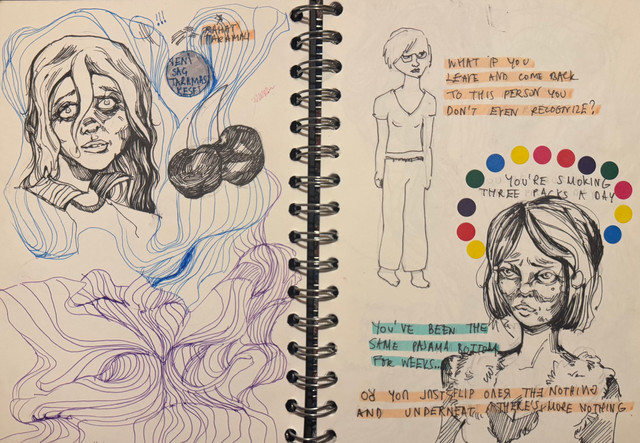 !!!
RAHAT
YENİ
SAÇ
WHAT IF YOU
LEAVE AND COME BACK
TO THIS PERSON YOU
DON'T EVEN RECOGNIZE?
YOU'RE SMOKING
THREE PACKS A DAY
YOU'VE BEEN THE
SAME PAJAMA BOTTOM
FOR WEEKS...
OR YOU JUST FLIP OVER THE NOTHING
AND UNDERNEATH THERE'S MORE NOTHING